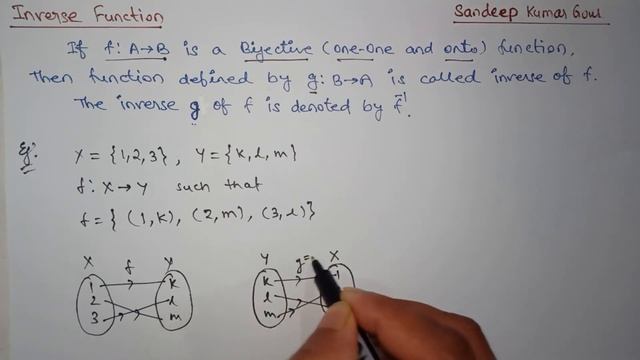 Inverse Function
Sandeep Kumar Gour
If f: A→B is a Bijective (one-one and onto) function,
then function defined by g: B→A is called inverse of f.
The inverse g of f is denoted by f⁻¹.
Eg:
X = {1,2,3}, Y = {k,l,m}
f: X→Y such that
f = { (1,k), (2,m), (3,l)}
X f Y
1 k
2 l
3 m
Y g= X
k 1
l
m